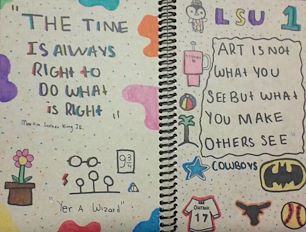 "THE TIME
IS ALWAYS
RIGHT TO
DO WHAT
IS RIGHT"
Martin Luther King Jr.
9¾
"Yer A Wizard"
LSU 1
ART IS NOT
WHAT YOU
SEE BUT WHAT
YOU MAKE
OTHERS SEE
COWBOYS
17